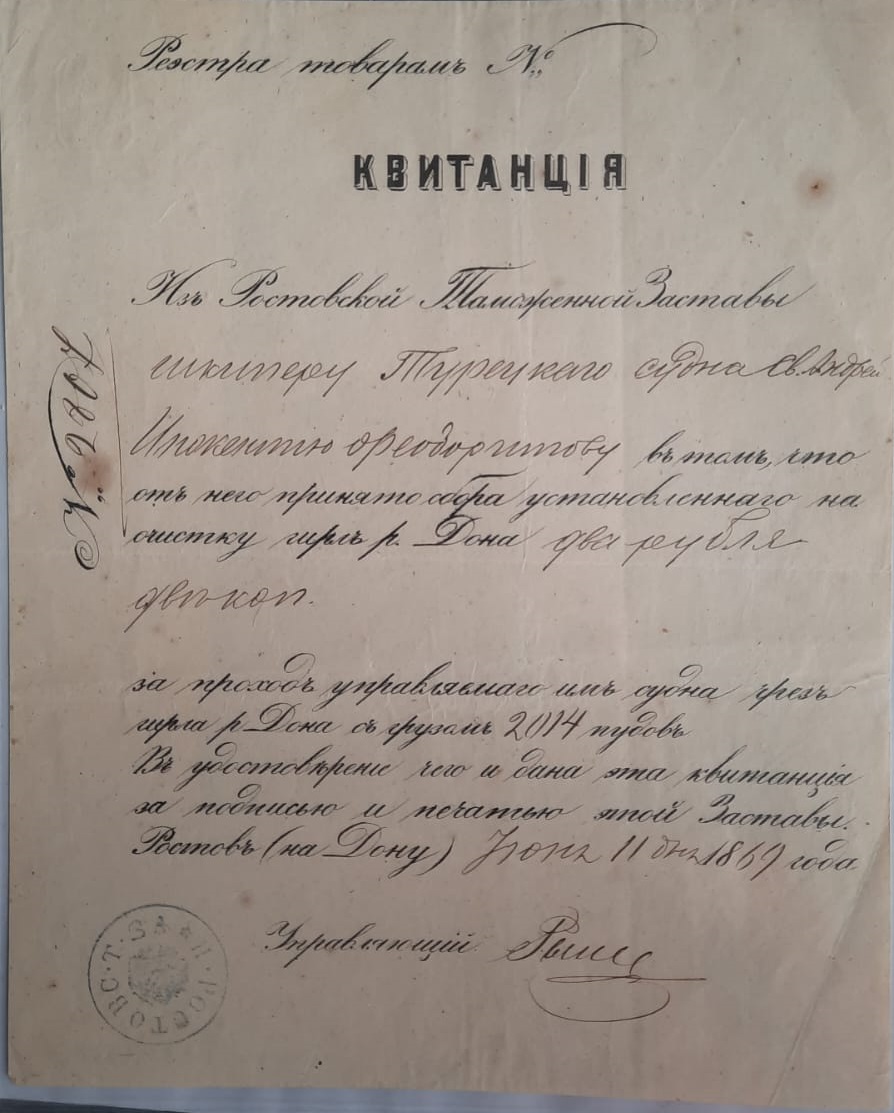 Реэстра товарамъ №
КВИТАНЦІЯ
Изъ Ростовской Таможенной Заставы
шкиперу Турецкаго судна Св. Андрей
въ томъ, что
отъ него принято сбора установленнаго на
очистку гирлъ р. Дона два рубля
двѣ коп.
за проходъ управляемаго имъ судна чрезъ
гирла р Дона съ грузомъ 2014 пудовъ
Въ удостовѣреніе чего и дана эта квитанція
за подписью и печатью этой Заставы.
Ростовъ (на Дону) Іюня 11 дня 1869 года
Управляющій
РОСТОВС. Т.
№